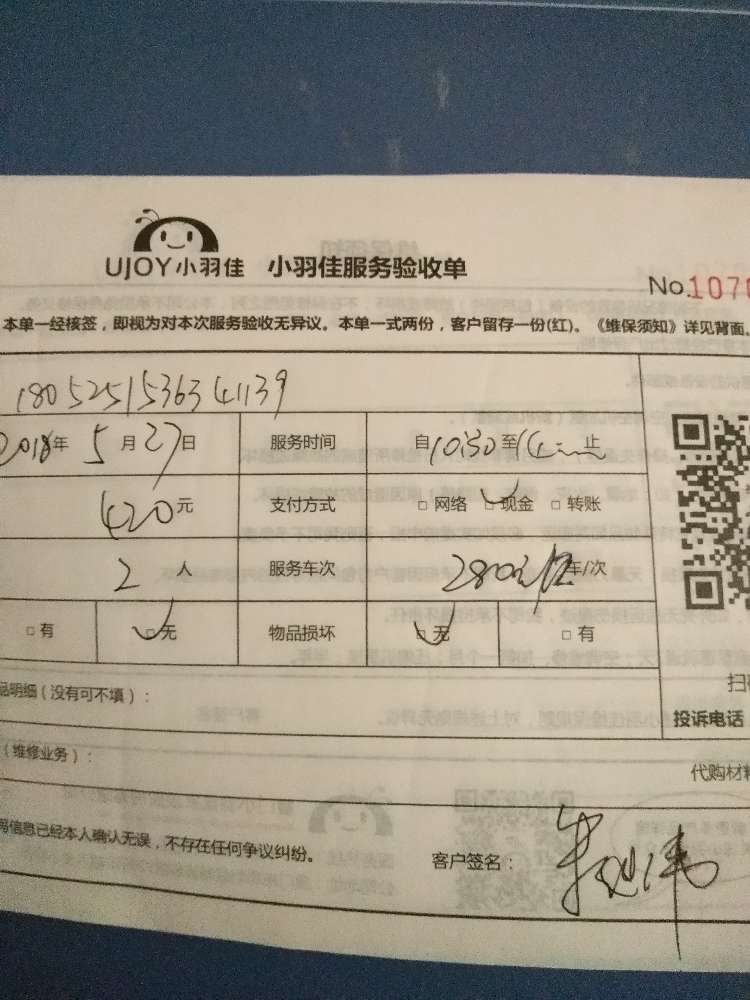 UJOY小羽佳 小羽佳服务验收单
No.1070
本单一经核签，即视为对本次服务验收无异议。本单一式两份，客户留存一份(红)。《维保须知》详见背面。
1805251536341139
2018年 5月27日 服务时间 自10:30至 止
420元 支付方式 □网络 □现金 □转账
2人 服务车次 280 车/次
□有 □无 物品损坏 □无 □有
品明细（没有可不填）：
扫
投诉电话
（维修业务）：
代购材料
信息已经本人确认无误，不存在任何争议纠纷。
客户签名：